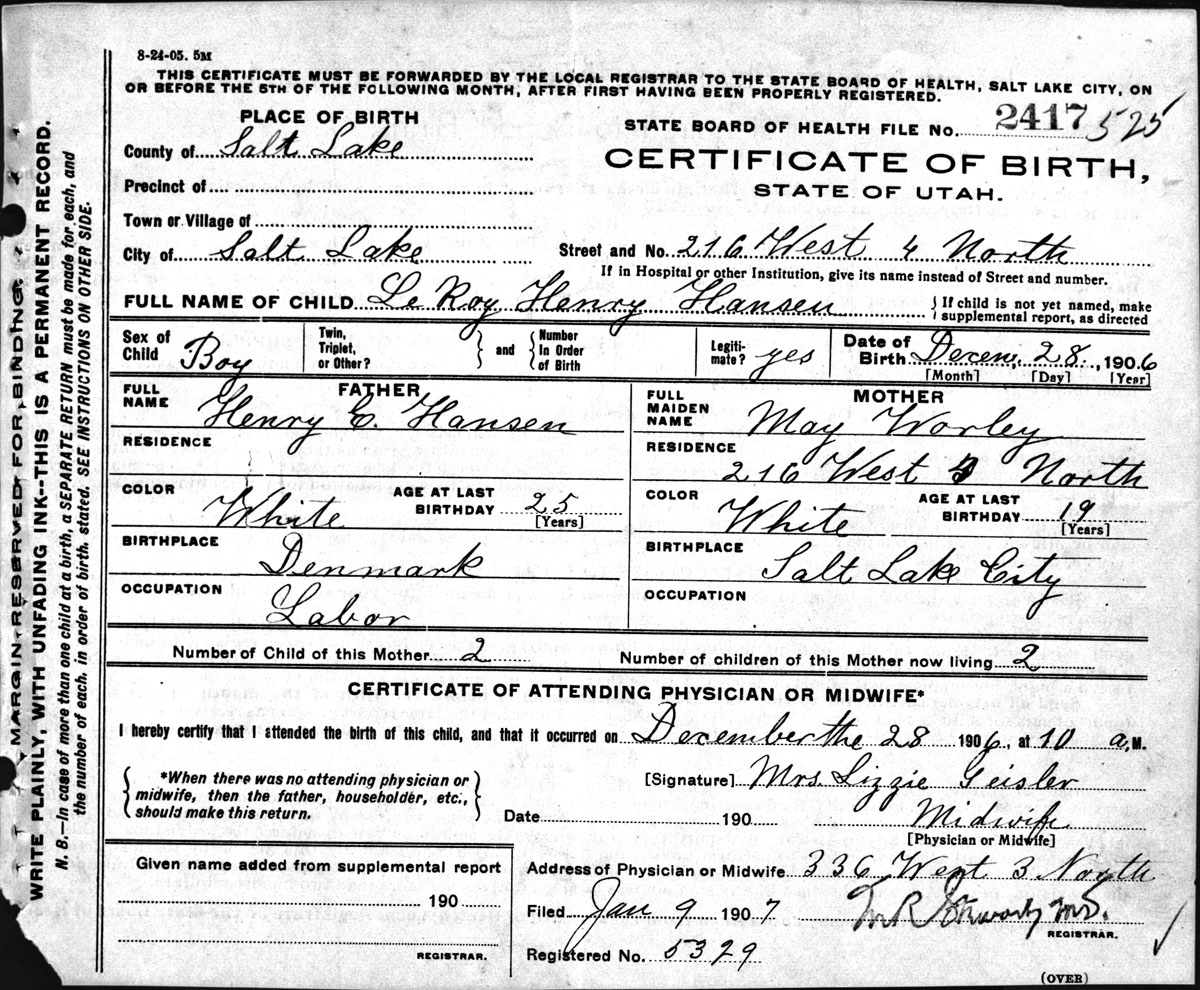 8-24-05. 5M
THIS CERTIFICATE MUST BE FORWARDED BY THE LOCAL REGISTRAR TO THE STATE BOARD OF HEALTH, SALT LAKE CITY, ON
OR BEFORE THE 5TH OF THE FOLLOWING MONTH, AFTER FIRST HAVING BEEN PROPERLY REGISTERED.
PLACE OF BIRTH
STATE BOARD OF HEALTH FILE No. 2417 525
County of Salt Lake
CERTIFICATE OF BIRTH,
STATE OF UTAH.
Precinct of
Town or Village of
City of Salt Lake
Street and No. 216 West 4 North
If in Hospital or other Institution, give its name instead of Street and number.
FULL NAME OF CHILD LeRoy Henry Hansen
If child is not yet named, make
supplemental report, as directed
Sex of
Child Boy
Twin,
Triplet,
or Other?
and
Number
In Order
of Birth
Legiti-
mate? yes
Date of
Birth Decem, 28, 1906
[Month] [Day] [Year]
FATHER
FULL
NAME Henry C. Hansen
RESIDENCE
COLOR White
AGE AT LAST
BIRTHDAY 25
[Years]
BIRTHPLACE
Denmark
OCCUPATION
Labor
MOTHER
FULL
MAIDEN
NAME May Worley
RESIDENCE
216 West North
COLOR White
AGE AT LAST
BIRTHDAY 19
[Years]
BIRTHPLACE
Salt Lake City
OCCUPATION
Number of Child of this Mother 2
Number of children of this Mother now living 2
CERTIFICATE OF ATTENDING PHYSICIAN OR MIDWIFE*
I hereby certify that I attended the birth of this child, and that it occurred on December the 28 1906, at 10 a.M.
*When there was no attending physician or
midwife, then the father, householder, etc.,
should make this return.
[Signature] Mrs. Lizzie Geisler
Date 190
Midwife
[Physician or Midwife]
Given name added from supplemental report
190
REGISTRAR.
Address of Physician or Midwife 336 West 3 North
Filed Jan 9 1907
M.D.
REGISTRAR.
Registered No. 5329
(OVER)
MARGIN RESERVED FOR BINDING
WRITE PLAINLY, WITH UNFADING INK--THIS IS A PERMANENT RECORD.
N. B.—In case of more than one child at a birth, a SEPARATE RETURN must be made for each, and
the number of each, in order of birth, stated. SEE INSTRUCTIONS ON OTHER SIDE.